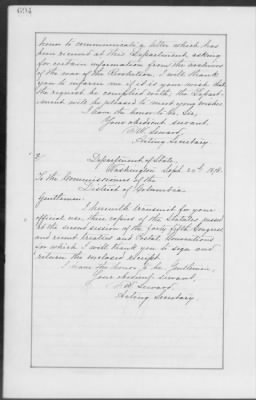 694
honor to communicate, a letter which has
been received at this Department, asking
for certain information from the archives
of the war of the Revolution. I will thank
you to inform me if it is your wish that
the request be complied with; the Depart-
ment will be pleased to meet your wishes.
I am the honor to be, Sir,
Your obedient servant,
F. W. Seward,
Acting Secretary.
Department of State,
Washington Sept. 20th 1878.
To the Commissioners of the
District of Columbia
Gentlemen:
I herewith transmit for your
official use three copies of the Statutes passed
at the second session of the forty fifth Congress
and recent treaties and Postal Conventions
for which I will thank you to sign and
return the enclosed receipt.
I have the honor to be, Gentlemen,
Your obedient servant,
F. W. Seward,
Acting Secretary.